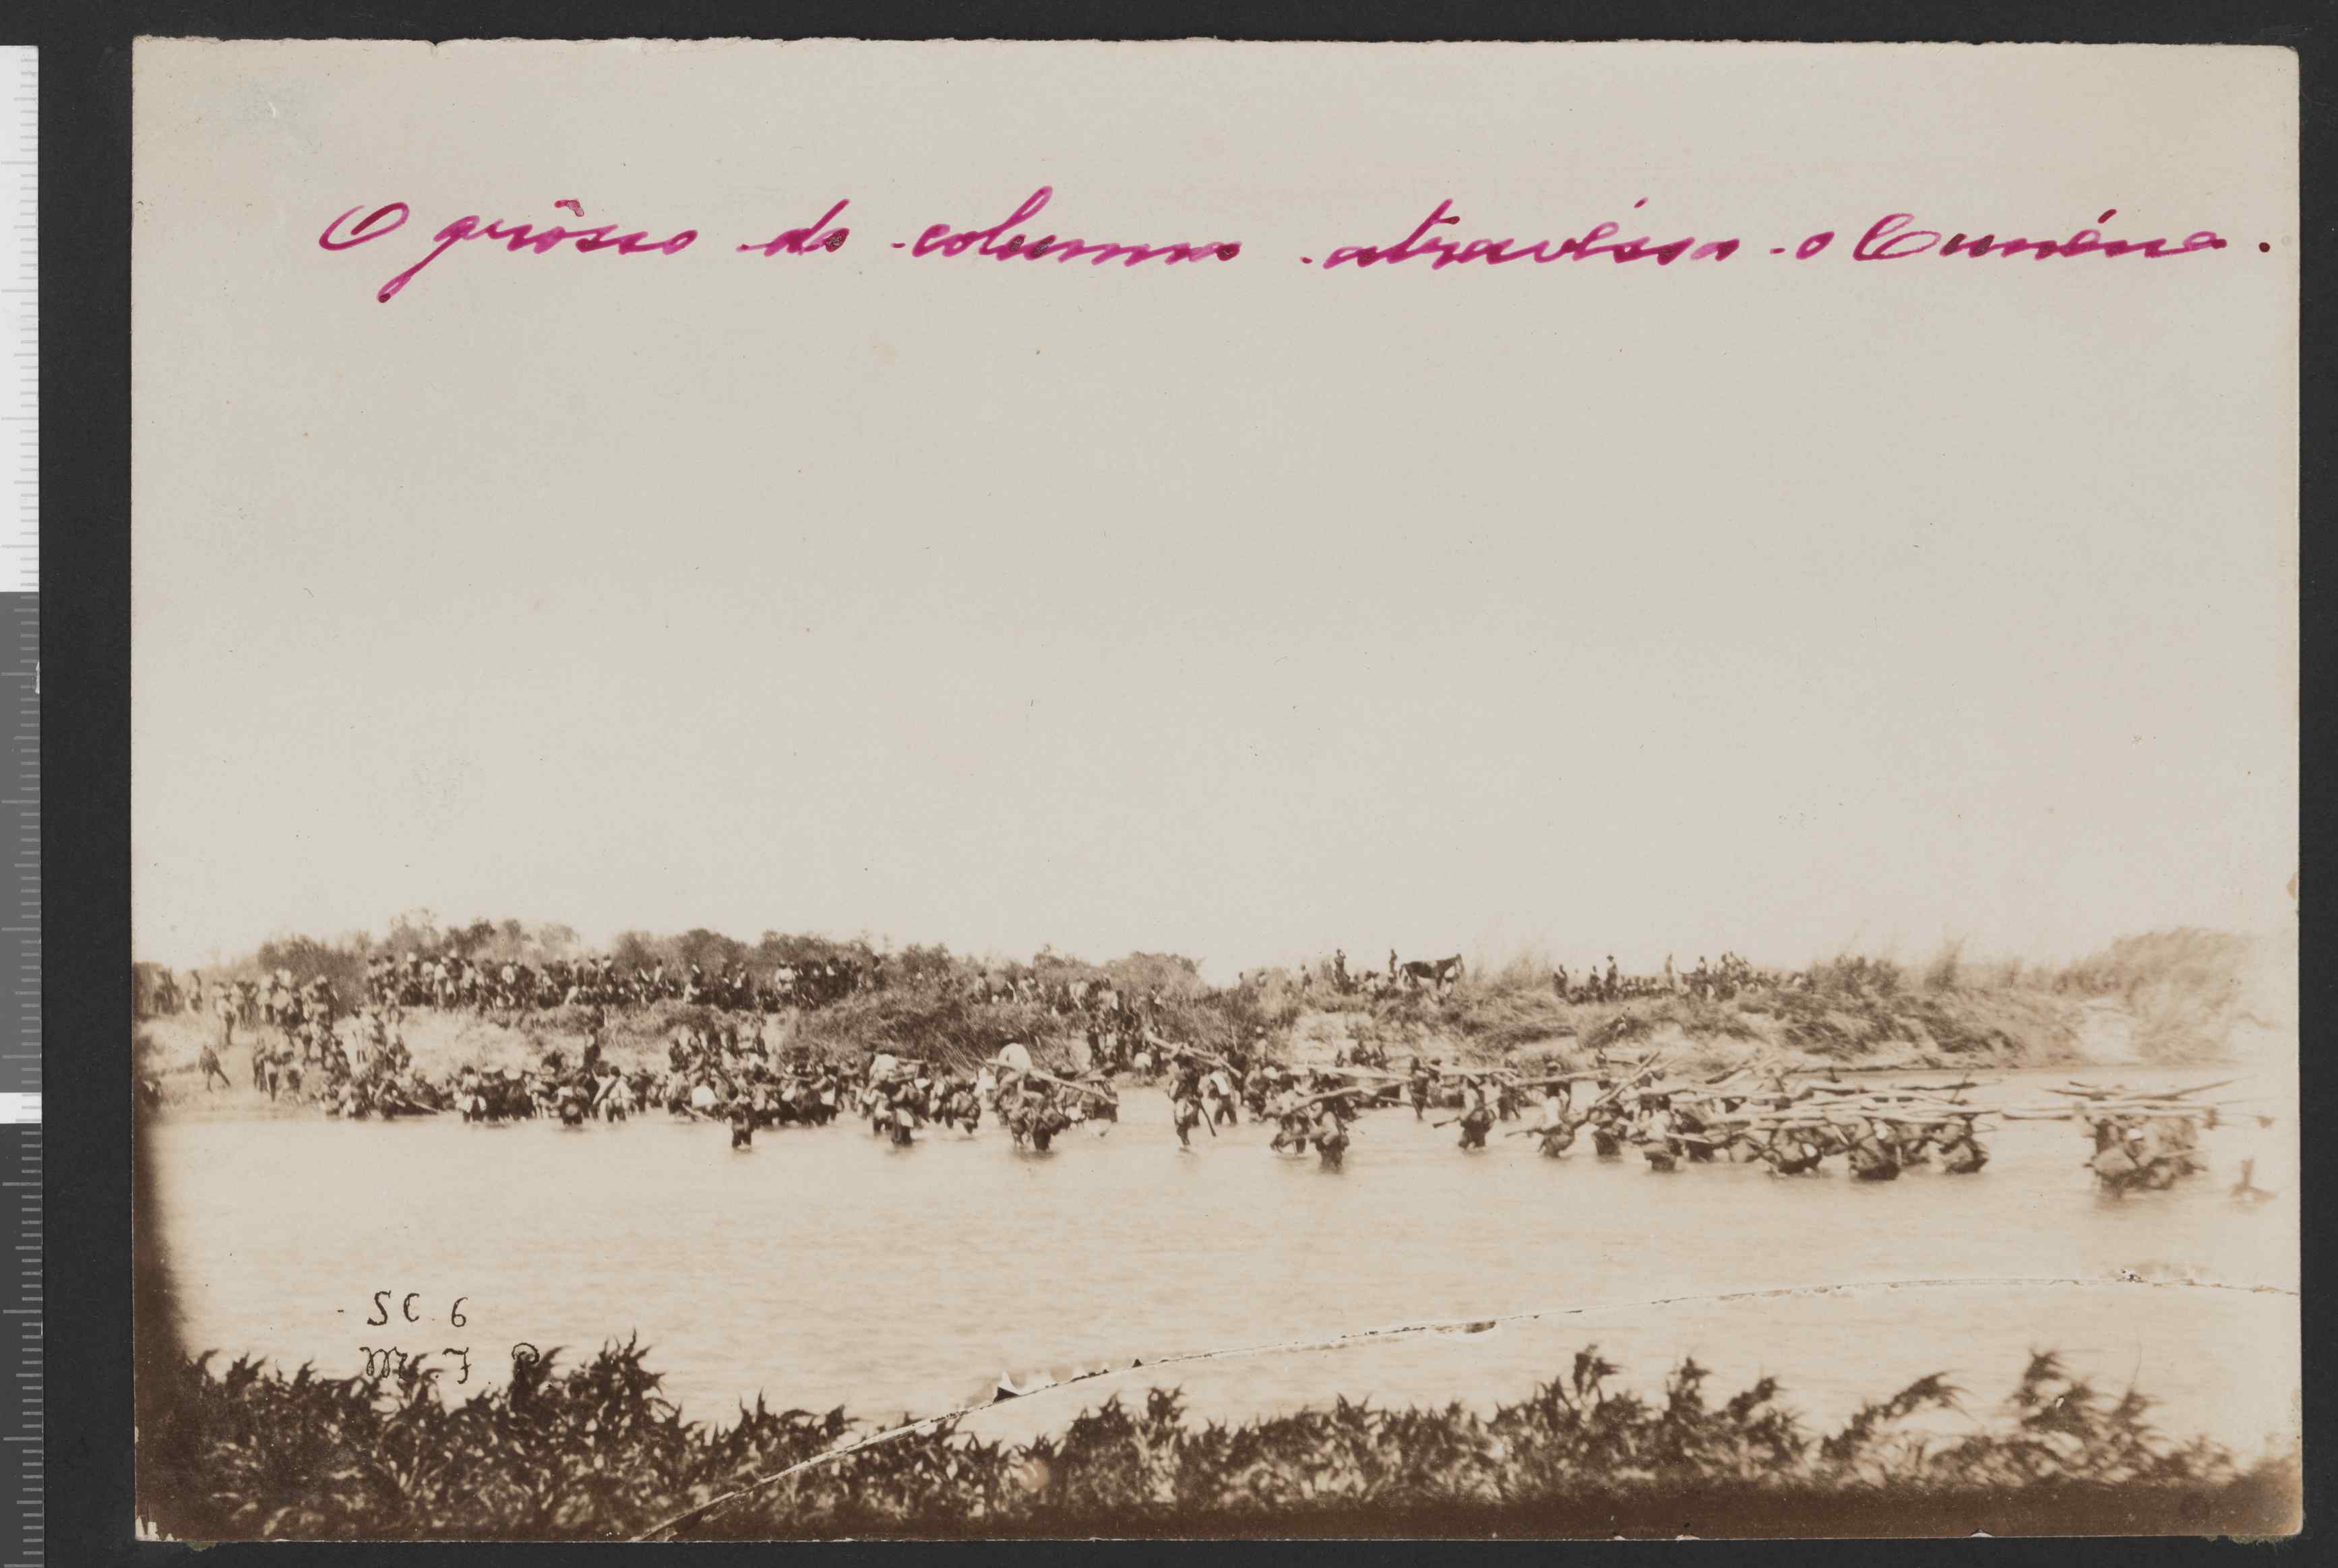 O grôsso da columna atravéssa o Cunéne.
SC 6